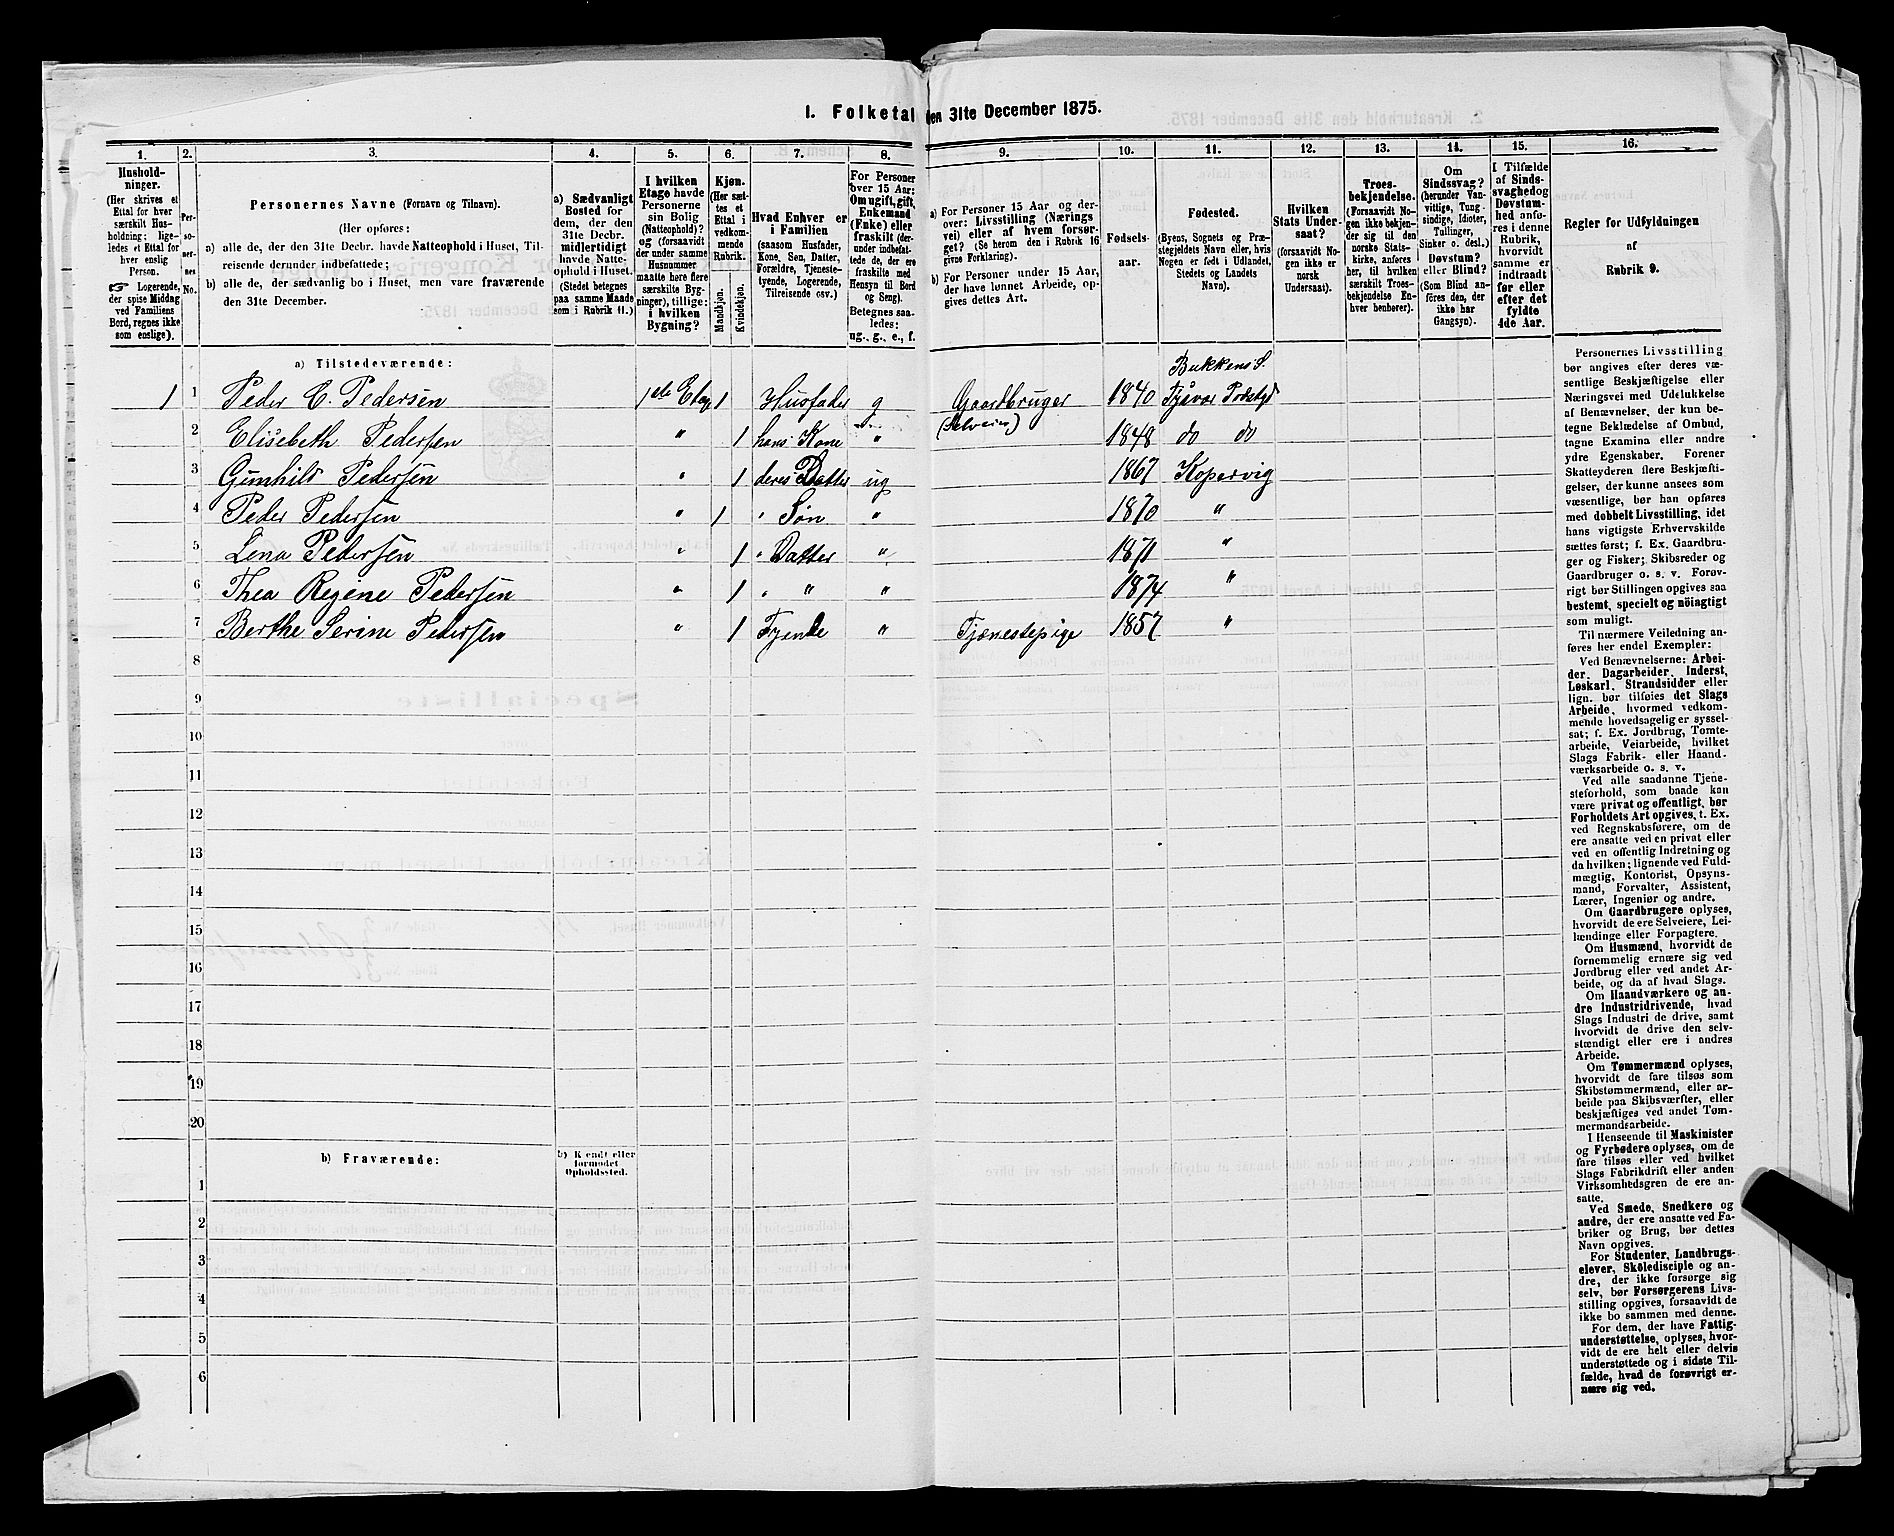 1. Folketal den 31te December 1875.
1. 2. 3. 4. 5. 6. 7. 8. 9. 10. 11. 12. 13. 14. 15. 16.
Hushold-
ninger.
(Her skrives et
Ettal for hver
særskilt Hus-
holdning; lige-
ledes et Ettal for
hver enslig
Person.
☞ Logerende,
der spise Middag
ved Familiens
Bord, regnes ikke
som enslige).
Per-
so-
ner-
nes
No.
Personernes Navne (Fornavn og Tilnavn).
(Her opføres:
a) alle de, der den 31te Decbr. havde Natteophold i Huset, Til-
reisende derunder indbefattede;
b) alle de, der sædvanlig bo i Huset, men vare fraværende
den 31te December.
a) Sædvanligt
Bosted for
dem, der den
31te Decbr.
midlertidigt
havde Natte-
ophold i Huset.
(Stedet betegnes
paa samme Maade
som i Rubrik 11.)
I hvilken
Etage havde
Personerne
sin Bolig
(Natteophold)?
og (forsaavidt
der under samme
Husnummer
maatte høre flere
særskilte Byg-
ninger), tillige:
i hvilken
Bygning?
Kjøn.
(Her sæt-
tes et
Ettal i
vedkom-
mende
Rubrik.
Mandkjøn.
Kvindekjøn.
Hvad Enhver er
i Familien
(saasom Husfader,
Kone, Søn, Datter,
Forældre, Tjeneste-
tyende, Logerende,
Tilreisende osv.)
For Personer
over 15 Aar:
Om ugift, gift,
Enkemand
(Enke) eller
fraskilt (der-
under indbefat-
tede de, der ere
fraskilte med
Hensyn til Bord
og Seng).
Betegnes saa-
ledes:
ug., g., e., f.
a) For Personer 15 Aar og der-
over: Livsstilling (Nærings
vei) eller af hvem forsør-
get? (Se herom den i Rubrik 16
givne Forklaring).
b) For Personer under 15 Aar,
der have lønnet Arbeide, op-
gives dettes Art.
Fødsels-
aar.
Fødested.
(Byens, Sognets og Præ-
stegjeldets Navn eller, hvis
Nogen er født i Udlandet,
Stedets og Landets
Navn).
Hvilken
Stats Under-
saat?
(forsaavidt No-
gen ikke er
norsk
Undersaat).
Troes-
bekjendelse.
(Forsaavidt No-
gen ikke bekjen-
der sig til den
norske Stats-
kirke, anføres
her, til hvilken
særskilt Troes-
bekjendelse En-
hver henhører).
Om
Sindssvag?
(herunder Van-
vittige, Tung-
sindige, Idioter,
Tullinger,
Sinker o. desl.)
Døvstum?
eller Blind?
(Som Blind an-
føres den, der
ikke har
Gangsyn).
I Tilfælde
af Sinds-
svaghed og
Døvstum-
hed anfø-
res i denne
Rubrik,
hvorvidt
samme er
indtraadt
før eller
efter det
fyldte
4de Aar.
Regler for Udfyldningen
af
Rubrik 9.
a) Tilstedeværende:
Bukkens S.
1 1 Peder C. Pedersen 1ste Etage 1 Husfader g Gaardbruger 1840 Tysvær Præstgd
(Selveier)
2 Elisebeth Pedersen " 1 hans Kone " 1848 do do
3 Gunhild Pedersen " 1 deres Datter ug 1867 Kopervig
4 Peder Pedersen " 1 " Søn " 1870 "
5 Lena Pedersen " 1 " Datter " 1871 "
6 Thea Regine Pedersen " 1 " " " 1874 "
7 Berthe Serine Pedersen " 1 Tyende " Tjænestepige 1857 "
8
9
10
11
12
13
14
15
16
17
18
19
20
b) Fraværende:
b) Kjendt eller
formodet
Opholdssted.
1
2
3
4
5
6
Personernes Livsstilling
bør angives efter deres væ-
sentlige Beskjæftigelse eller
Næringsvei med Udelukkelse
af Benævnelser, der kun be-
tegne Beklædelse af Ombud,
tagne Examina eller andre
ydre Egenskaber. Forener
Skatteyderen flere Beskjæfti-
gelser, der kunne ansees som
væsentlige, bør han opføres
med dobbelt Livsstilling, idet
hans vigtigste Erhvervskilde
sættes først; f. Ex. Gaardbru-
ger og Fisker; Skibsreder og
Gaardbruger o. s. v. Forøv-
rigt bør Stillingen opgives saa
bestemt, specielt og nöiagtigt
som muligt.
Til nærmere Veiledning an-
føres her endel Exempler:
Ved Benævnelserne: Arbei-
der, Dagarbeider, Inderst,
Løskarl, Strandsidder eller
lign. bør tilføies det Slags
Arbeide, hvormed vedkom-
mende hovedsagelig er syssel-
sat; f. Ex. Jordbrug, Tomte-
arbeide, Veiarbeide, hvilket
Slags Fabrik- eller Haand-
værksarbeide o. s. v.
Ved alle saadanne Tjene-
steforhold, som baade kan
være privat og offentligt, bør
Forholdets Art opgives, t. Ex.
ved Regnskabsførere, om de
ere ansatte ved en privat eller
ved en offentlig Indretning og
da hvilken; lignende ved Fuld-
mægtig, Kontorist, Opsyns-
mand, Forvalter, Assistent,
Lærer, Ingeniør og andre.
Om Gaardbrugere oplyses,
hvorvidt de ere Selveiere, Lei-
lændinge eller Forpagtere.
Om Husmænd, hvorvidt de
fornemmelig ernære sig ved
Jordbrug eller ved andet Ar-
beide, og da af hvad Slags.
Om Haandværkere og an-
dre Industridrivende, hvad
Slags Industri de drive, samt
hvorvidt de drive den selv-
stændigt eller ere i andres
Arbeide.
Om Tømmermænd oplyses,
hvorvidt de fare tilsøs som
Skibstømmermænd, eller ar-
beide paa Skibsværfter, eller
beskjæftiges ved andet Tøm-
mermandsarbeide.
I Henseende til Maskinister
og Fyrbødere oplyses, om de
fare tilsøs eller ved hvilket
Slags Fabrikdrift eller anden
Virksomhedsgren de ere an-
satte.
Ved Smede, Snedkere og
andre, der ere ansatte ved Fa-
briker og Brug, bør dettes
Navn opgives.
For Studenter, Landbrugs-
elever, Skoledisciple og an-
dre, der ikke forsørge sig
selv, bør Forsørgerens Livs-
stilling opgives, forsaavidt de
ikke bo sammen med denne.
For dem, der have Fattig-
understøttelse, oplyses, hvor-
vidt de ere helt eller delvis
understøttede og i sidste Til-
fælde, hvad de forøvrigt er-
nære sig ved.